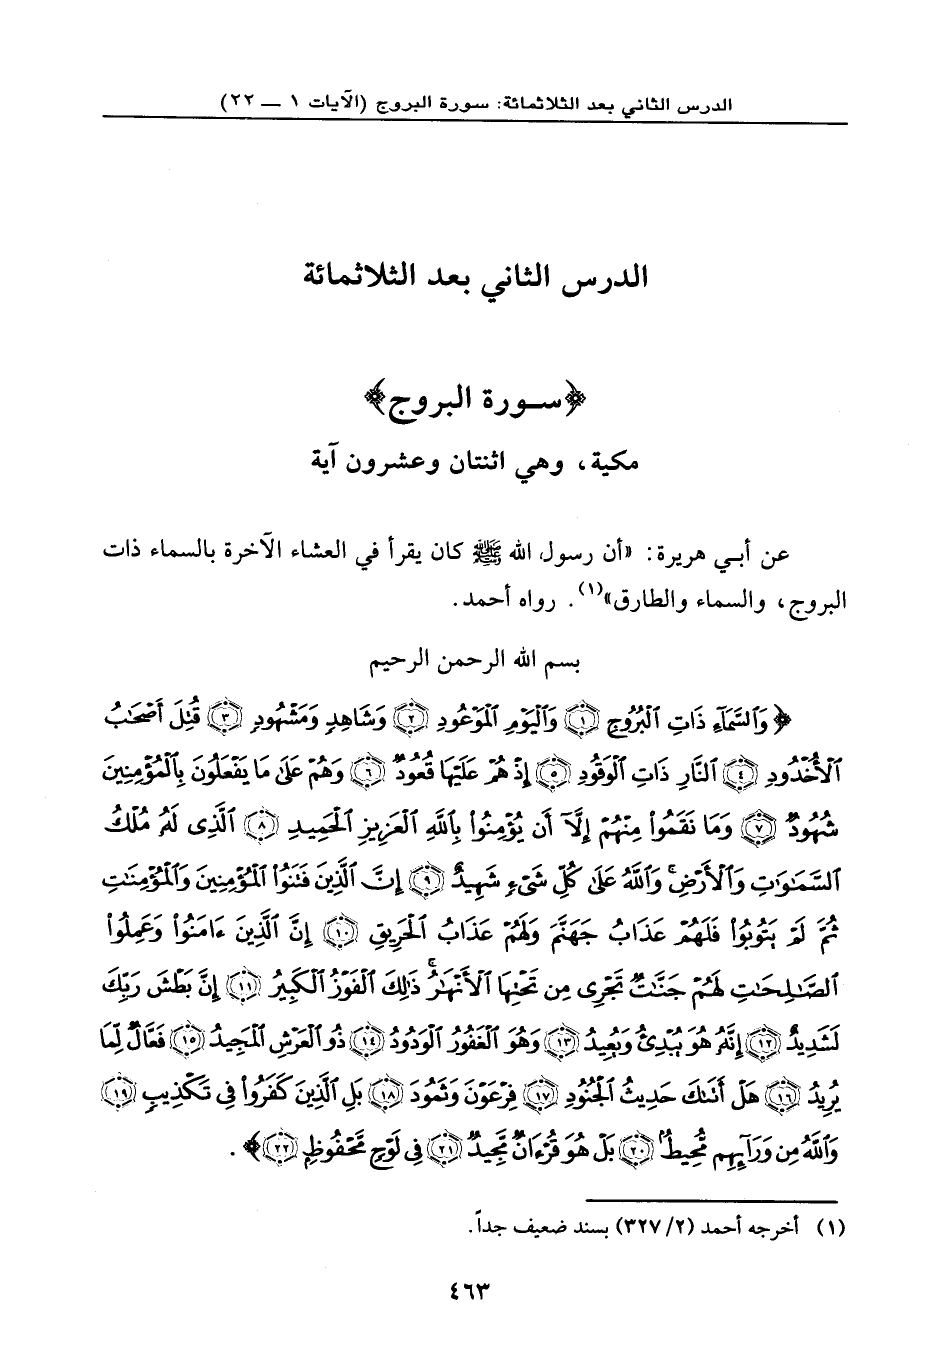 الدرس الثاني بعد الثلاثمائة: سورة البروج (الآيات ١ — ٢٢)
الدرس الثاني بعد الثلاثمائة
﴿سورة البروج﴾
مكية، وهي اثنتان وعشرون آية
عن أبي هريرة: «أن رسول الله ﷺ كان يقرأ في العشاء الآخرة بالسماء ذات
البروج، والسماء والطارق»(١). رواه أحمد.
بسم الله الرحمن الرحيم
﴿وَٱلسَّمَآءِ ذَاتِ ٱلْبُرُوجِ ١ وَٱلْيَوْمِ ٱلْمَوْعُودِ ٢ وَشَاهِدٍ وَمَشْهُودٍ ٣ قُتِلَ أَصْحَٰبُ
ٱلْأُخْدُودِ ٤ ٱلنَّارِ ذَاتِ ٱلْوَقُودِ ٥ إِذْ هُمْ عَلَيْهَا قُعُودٌ ٦ وَهُمْ عَلَىٰ مَا يَفْعَلُونَ بِٱلْمُؤْمِنِينَ
شُهُودٌ ٧ وَمَا نَقَمُوا۟ مِنْهُمْ إِلَّآ أَن يُؤْمِنُوا۟ بِٱللَّهِ ٱلْعَزِيزِ ٱلْحَمِيدِ ٨ ٱلَّذِى لَهُۥ مُلْكُ
ٱلسَّمَٰوَٰتِ وَٱلْأَرْضِ ۚ وَٱللَّهُ عَلَىٰ كُلِّ شَىْءٍ شَهِيدٌ ٩ إِنَّ ٱلَّذِينَ فَتَنُوا۟ ٱلْمُؤْمِنِينَ وَٱلْمُؤْمِنَٰتِ
ثُمَّ لَمْ يَتُوبُوا۟ فَلَهُمْ عَذَابُ جَهَنَّمَ وَلَهُمْ عَذَابُ ٱلْحَرِيقِ ١٠ إِنَّ ٱلَّذِينَ ءَامَنُوا۟ وَعَمِلُوا۟
ٱلصَّٰلِحَٰتِ لَهُمْ جَنَّٰتٌ تَجْرِى مِن تَحْتِهَا ٱلْأَنْهَٰرُ ۚ ذَٰلِكَ ٱلْفَوْزُ ٱلْكَبِيرُ ١١ إِنَّ بَطْشَ رَبِّكَ
لَشَدِيدٌ ١٢ إِنَّهُۥ هُوَ يُبْدِئُ وَيُعِيدُ ١٣ وَهُوَ ٱلْغَفُورُ ٱلْوَدُودُ ١٤ ذُو ٱلْعَرْشِ ٱلْمَجِيدُ ١٥ فَعَّالٌ لِّمَا
يُرِيدُ ١٦ هَلْ أَتَىٰكَ حَدِيثُ ٱلْجُنُودِ ١٧ فِرْعَوْنَ وَثَمُودَ ١٨ بَلِ ٱلَّذِينَ كَفَرُوا۟ فِى تَكْذِيبٍ ١٩
وَٱللَّهُ مِن وَرَآئِهِم مُّحِيطٌۢ ٢٠ بَلْ هُوَ قُرْءَانٌ مَّجِيدٌ ٢١ فِى لَوْحٍ مَّحْفُوظٍۭ ٢٢﴾.
(١) أخرجه أحمد (٣٢٧/٢) بسند ضعيف جداً.
٤٦٣